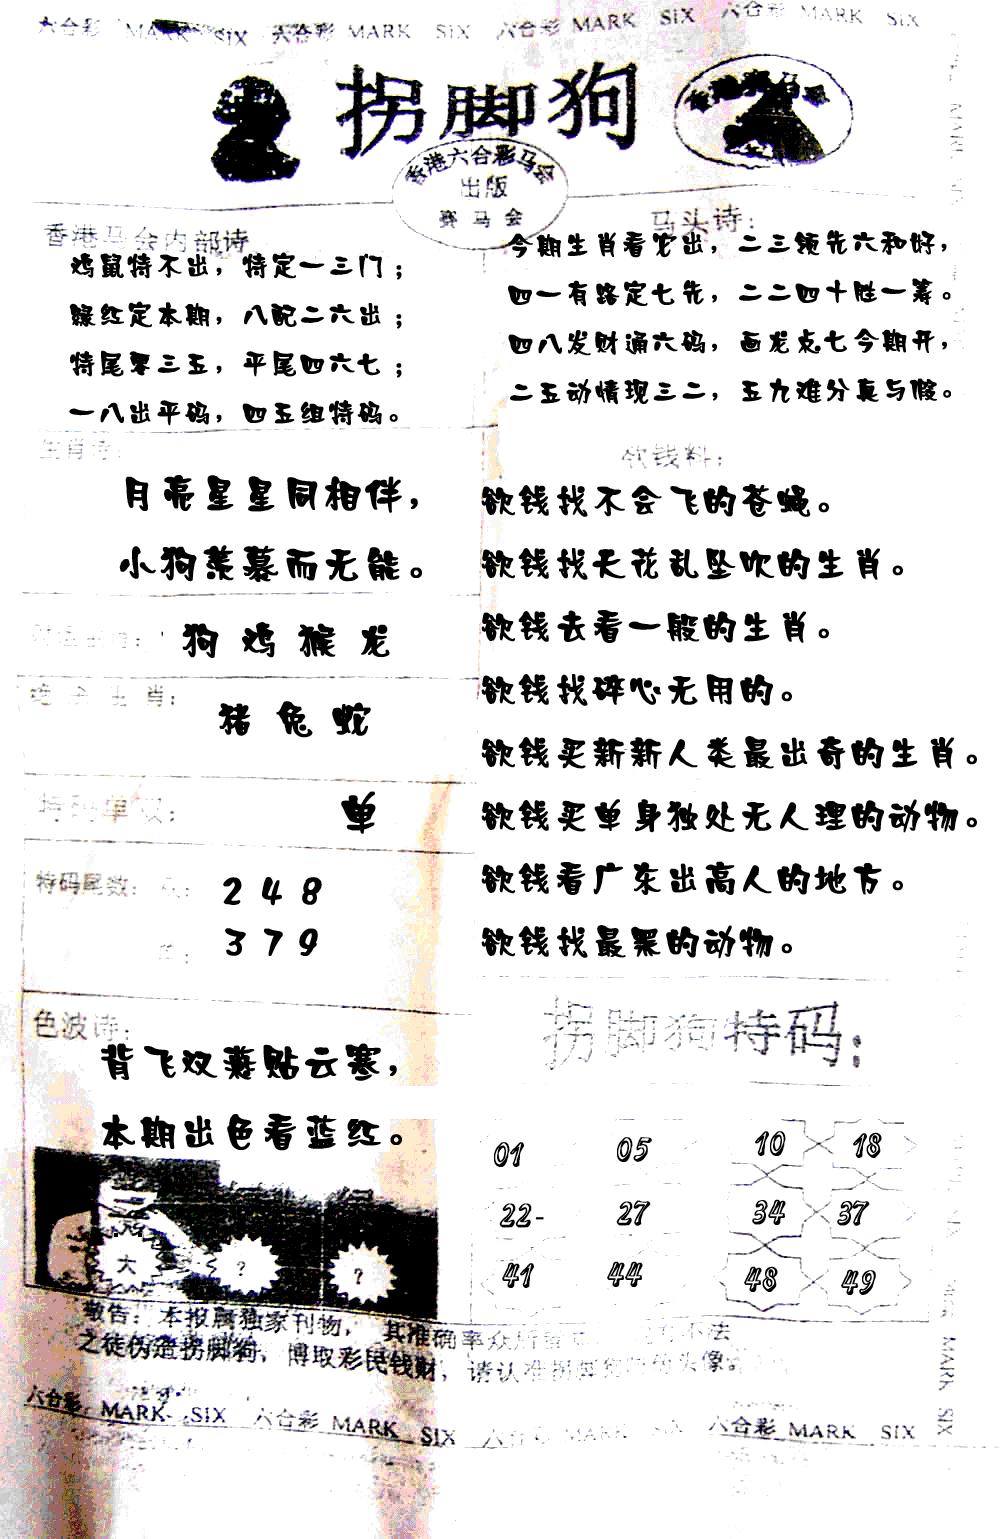 六合彩 MARK SIX 六合彩 MARK SIX 六合彩 MARK SIX 六合彩 MARK SIX
拐脚狗
香港六合彩马会
出版
赛马会
香港马会内部诗
鸡鼠特不出，特定一三门；
绿红定本期，八配二六出；
特尾零三五，平尾四六七；
一八出平码，四五组特码。
马头诗：
今期生肖看龙出，二三领先六和好，
四一有路定七先，二二四十胜一筹。
四八发财通六码，画龙点七今期开，
二五动情现三二，五九难分真与假。
生肖诗：
月亮星星同相伴，
小狗羡慕而无能。
狗 鸡 猴 龙
生肖：
猪 兔 蛇
特码单双：
单
特码尾数：
2 4 8
3 7 9
色波诗：
背飞双燕贴云寒，
本期出色看蓝红。
大 ? ?
欲钱料：
欲钱找不会飞的苍蝇。
欲钱找天花乱坠吹的生肖。
欲钱去看一般的生肖。
欲钱找碎心无用的。
欲钱买新新人类最出奇的生肖。
欲钱买单身独处无人理的动物。
欲钱看广东出高人的地方。
欲钱找最黑的动物。
拐脚狗特码：
01 05 10 18
22- 27 34 37
41 44 48 49
敬告：本报属独家刊物，其准确率众所 不法
之徒伪造拐脚狗，博取彩民钱财，请认准拐脚狗 头像。
六合彩 MARK SIX 六合彩 MARK SIX 六合彩 MARK SIX 六合彩 MARK SIX
MARK SIX